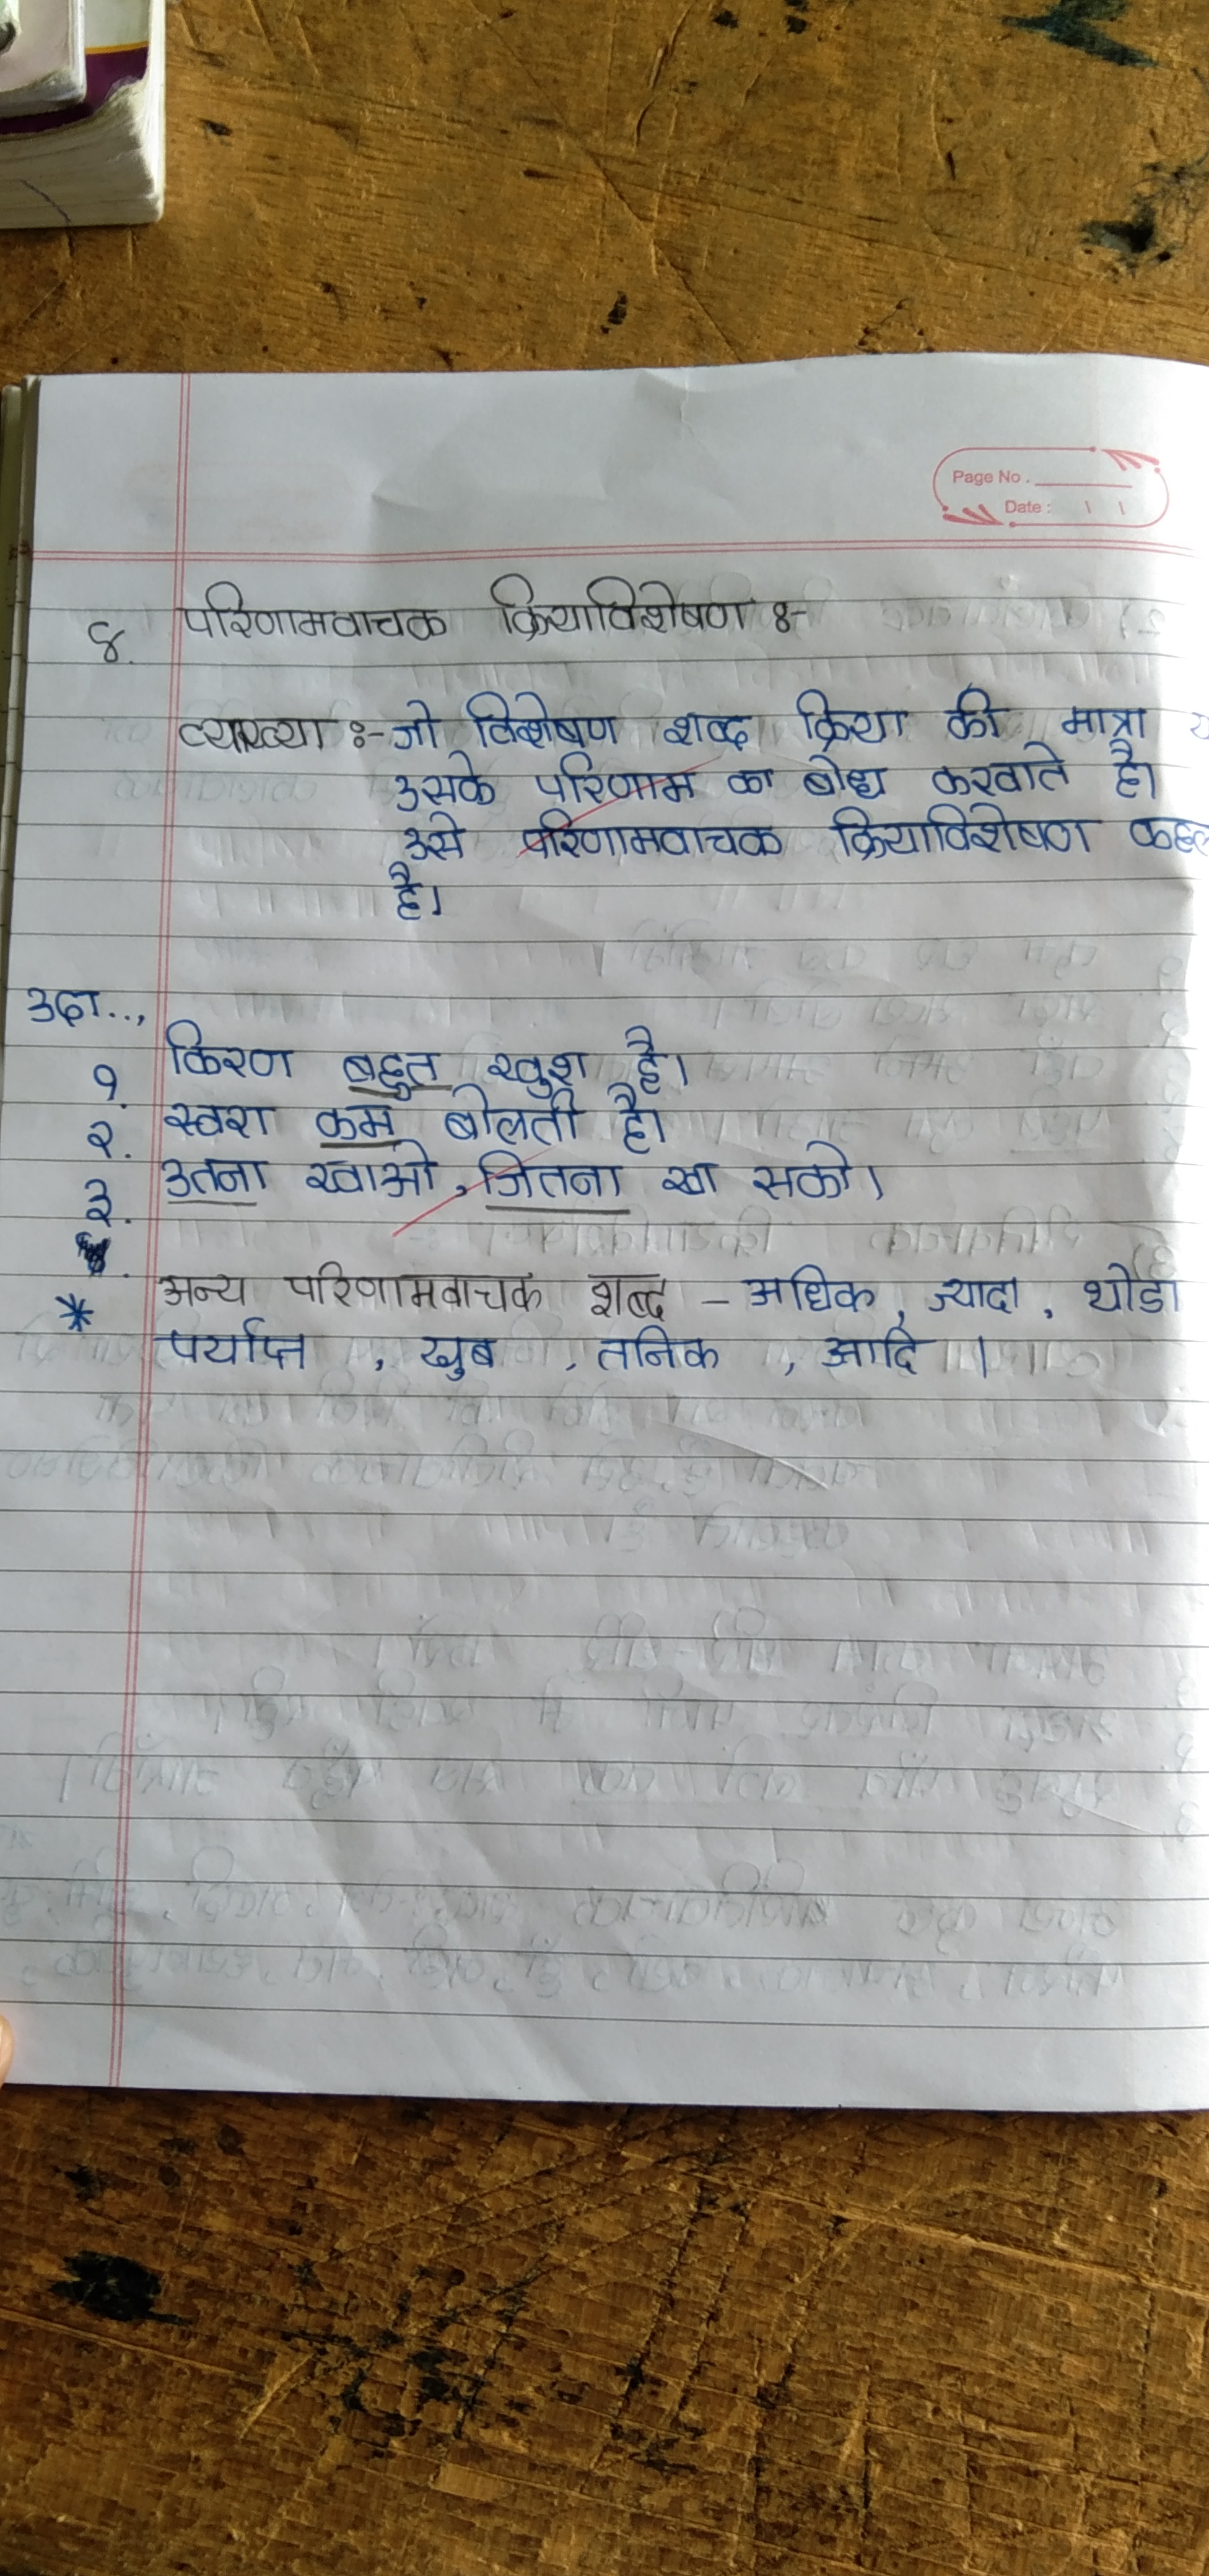 Page No.
Date :
४. परिणामवाचक क्रियाविशेषण :-
व्याख्या :- जो विशेषण शब्द क्रिया की मात्रा
उसके परिणाम का बोध करवाते है।
उसे परिणामवाचक क्रियाविशेषण
है।
उदा..,
१. किरण बहुत खुश है।
२. स्वरा कम बोलती है।
३. उतना खाओ, जितना खा सको।
* अन्य परिणामवाचक शब्द – अधिक, ज्यादा, थोडा
पर्याप्त , खुब , तनिक , आदि ।